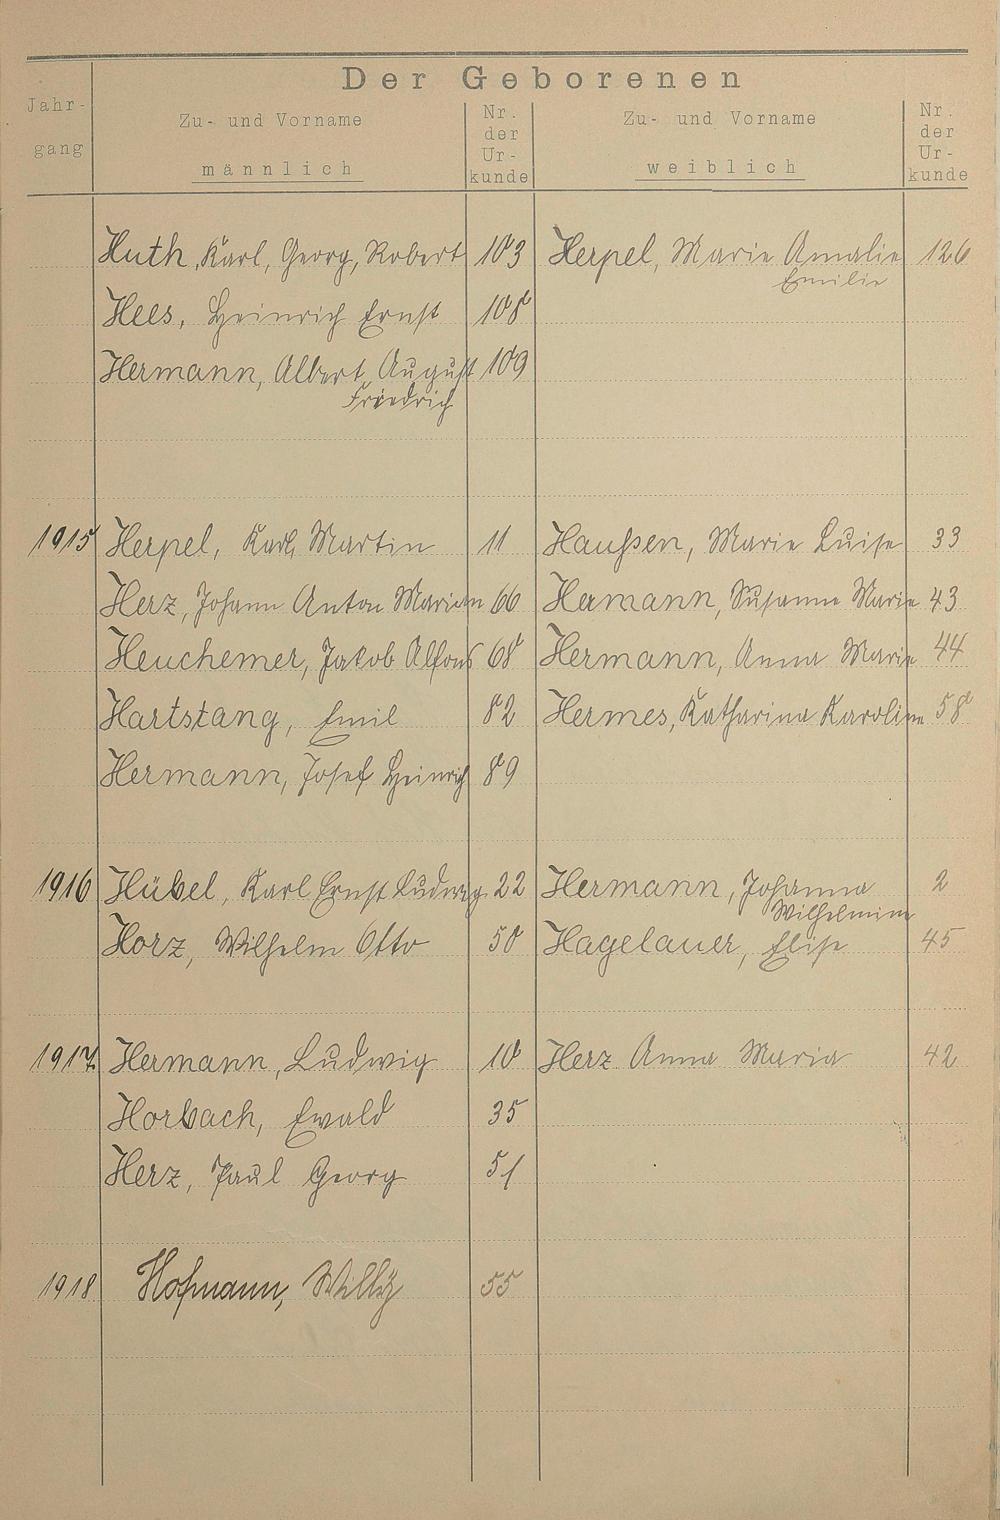 Der Geborenen
Jahr-
gang
Zu- und Vorname
männlich
Nr.
der
Ur-
kunde
Zu- und Vorname
weiblich
Nr.
der
Ur-
kunde
Huth, Karl, Georg, Robert 103 Herpel, Marie Amalie 126
Emilie
Hees, Heinrich Ernst 108
Hermann, Albert August 109
Friedrich
1915 Herpel, Karl Martin 11 Haußen, Marie Luise 33
Herz, Johann Anton Marien 66 Hermann, Susanne Marie 43
Heuchemer, Jakob Alfons 68 Hermann, Anna Marie 44
Hartstang, Emil 82 Hermes, Katharina Karoline 58
Hermann, Josef Heinrich 89
1916 Hübel, Karl Ernst Ludwig 22 Hermann, Johanna 2
Wilhelmine
Horz, Wilhelm Otto 50 Hagelauer, Elise 45
1917 Hermann, Ludwig 10 Herz Anna Maria 42
Horbach, Ewald 35
Herz, Paul Georg 51
1918 Hofmann, Willy 55